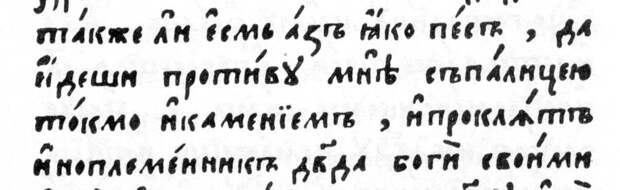 та́кже а҆́и є҆́смь а́зъ ꙗ҆́ко пе́съ , да
и҆́деши проти́вꙋ мнѣ̀ съпа́лицею
то́кмо и҆каменїемъ , и҆проклѧ́тъ
и҆ноплеме́нникъ дв҃да боги̑ свои́ми